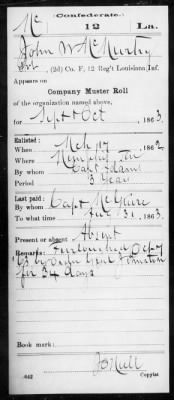 Mc
(Confederate.)
12 La.
John W McMurtry
Pvt, (2d) Co. F, 12 Reg't Louisiana Inf.
Appears on
Company Muster Roll
of the organization named above,
for Sept & Oct, 1863.
Enlisted:
When Mch 17, 1862
Where Memphis Ten
By whom Capt Adams
Period 3 years
Last paid:
By whom Capt McGuire
To what time July 31, 1863.
Present or absent Absent
Remarks: Furloughed Oct 7
'63 by order Genl Johnston
for 34 days
Book mark:
642
Copyist